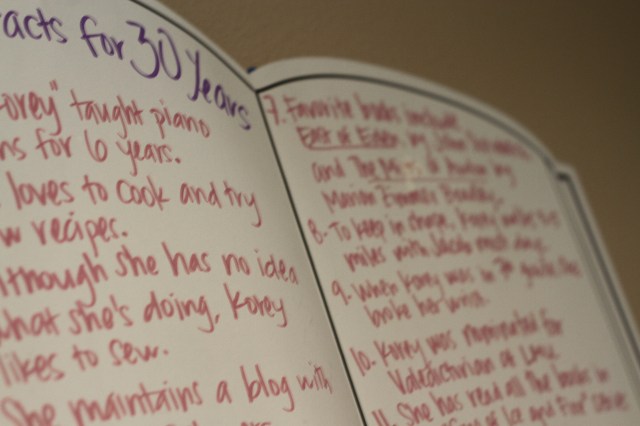 acts for 30 Years
orey" taught piano
ns for 6 years.
loves to cook and try
w recipes.
lthough she has no idea
what she's doing, Korey
likes to sew.
She maintains a blog with
7. Favorite books include
East of Eden by John
and The Mists of Avalon by
Marion Zimmer Bradley.
8. To keep in shape, Korey
miles with Jacob most days.
9. When Korey was in 7th grade, she
broke her wrist.
10. Korey was nominated for
Valedictorian at
11. She has read all the books in
of Ice and Fire" series